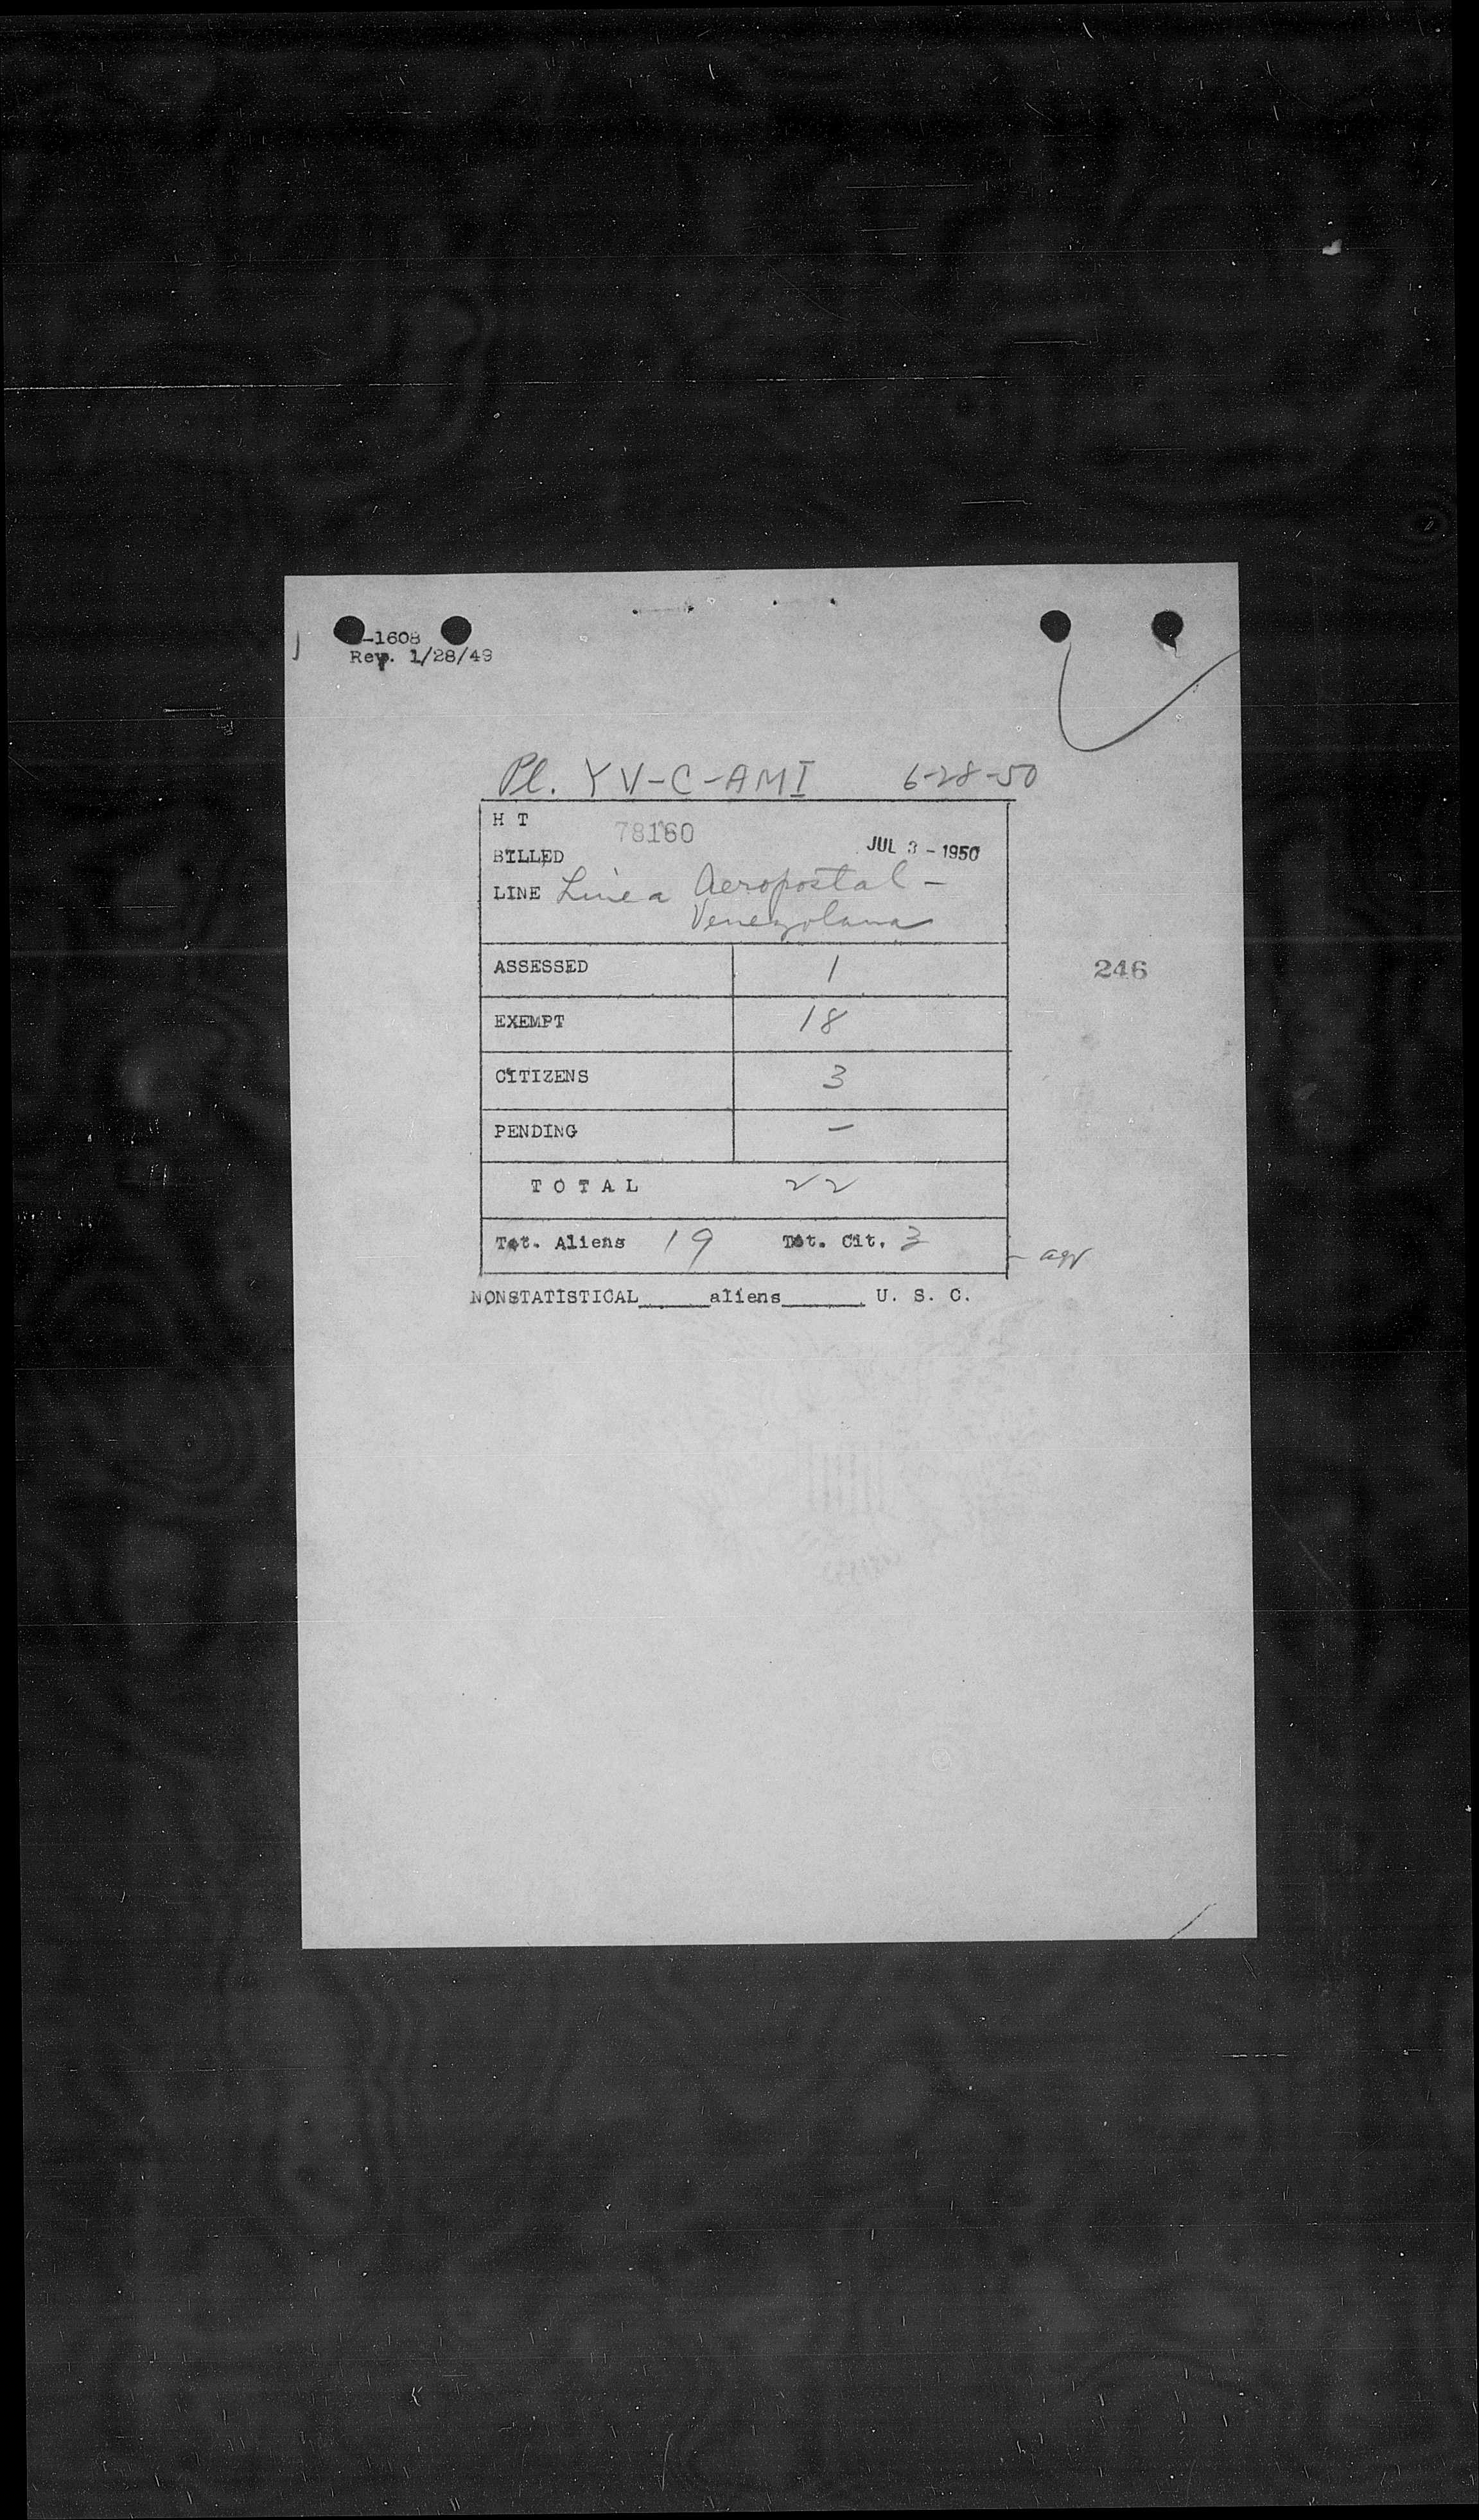 -1608
Rev. 1/28/49
Pl. YV-C-AMI 6-28-50
H T 78160
BILLED JUL 3 - 1950
LINE Linea Aeropostal -
Venezolana
ASSESSED 1
246
EXEMPT 18
CITIZENS 3
PENDING —
T O T A L 22
Tot. Aliens 19 Tot. Cit. 3
NONSTATISTICAL_____aliens______ U. S. C.